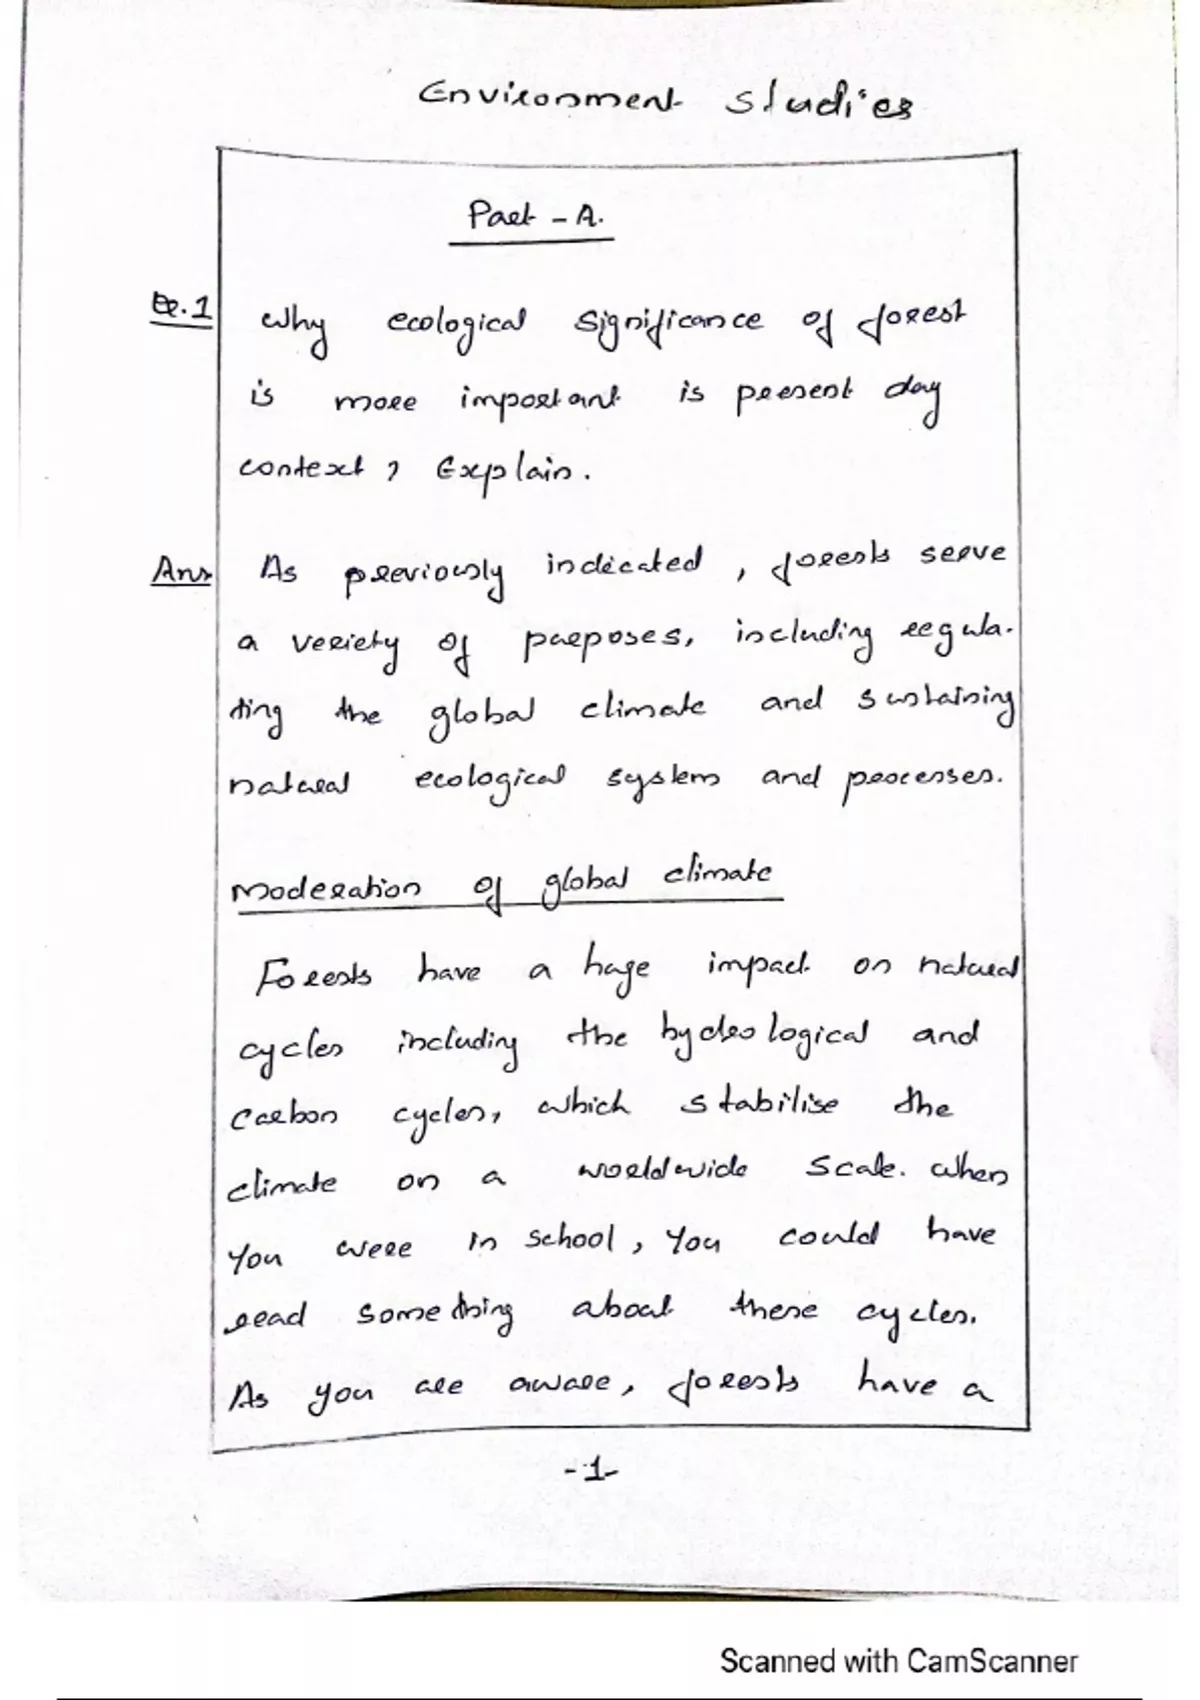 Environment studies
Part - A.
Q.1 Why ecological significance of forest
is more important is present day
context ? Explain.
Ans As previously indicated, forests serve
a veriety of purposes, including regula-
ting the global climate and sustaining
natural ecological system and processes.
Moderation of global climate
Forests have a huge impact on natural
cycles including the hydrological and
carbon cycles, which stabilise the
climate on a worldwide scale. when
you were in school, you could have
read something about these cycles.
As you are aware, forests have a
-1-
Scanned with CamScanner